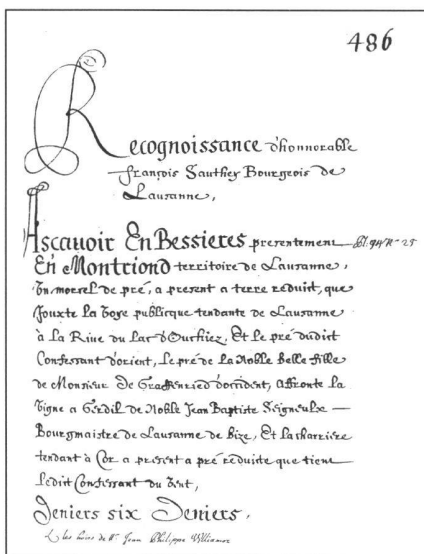 486
Recognoissance d'honnorable
françois Sauthey Bourgeois de
Lausanne,
Ascavoir En Bessieres presentement fol. 94 N° 25
En Montriond territoire de Lausanne,
Un morsel de pré, a present a terre reduit, que
Jouxte la Voye publicque tendante de Lausanne
à la Rive du lac d'Ouchiez, Et le pré dudit
Confessant d'orient, le pré de la Noble belle fille
de Monsieur de Graffenried d'occident, affronte la
Vigne a Gerdil de Noble Jean Baptiste Seigneulx
Bourgmaistre de Lausanne de bize, Et la charriere
tendant à Cor a present a pré reduite que tient
ledit Confessant du Vent,
Deniers six Deniers.
les hoirs de Jean Philippe